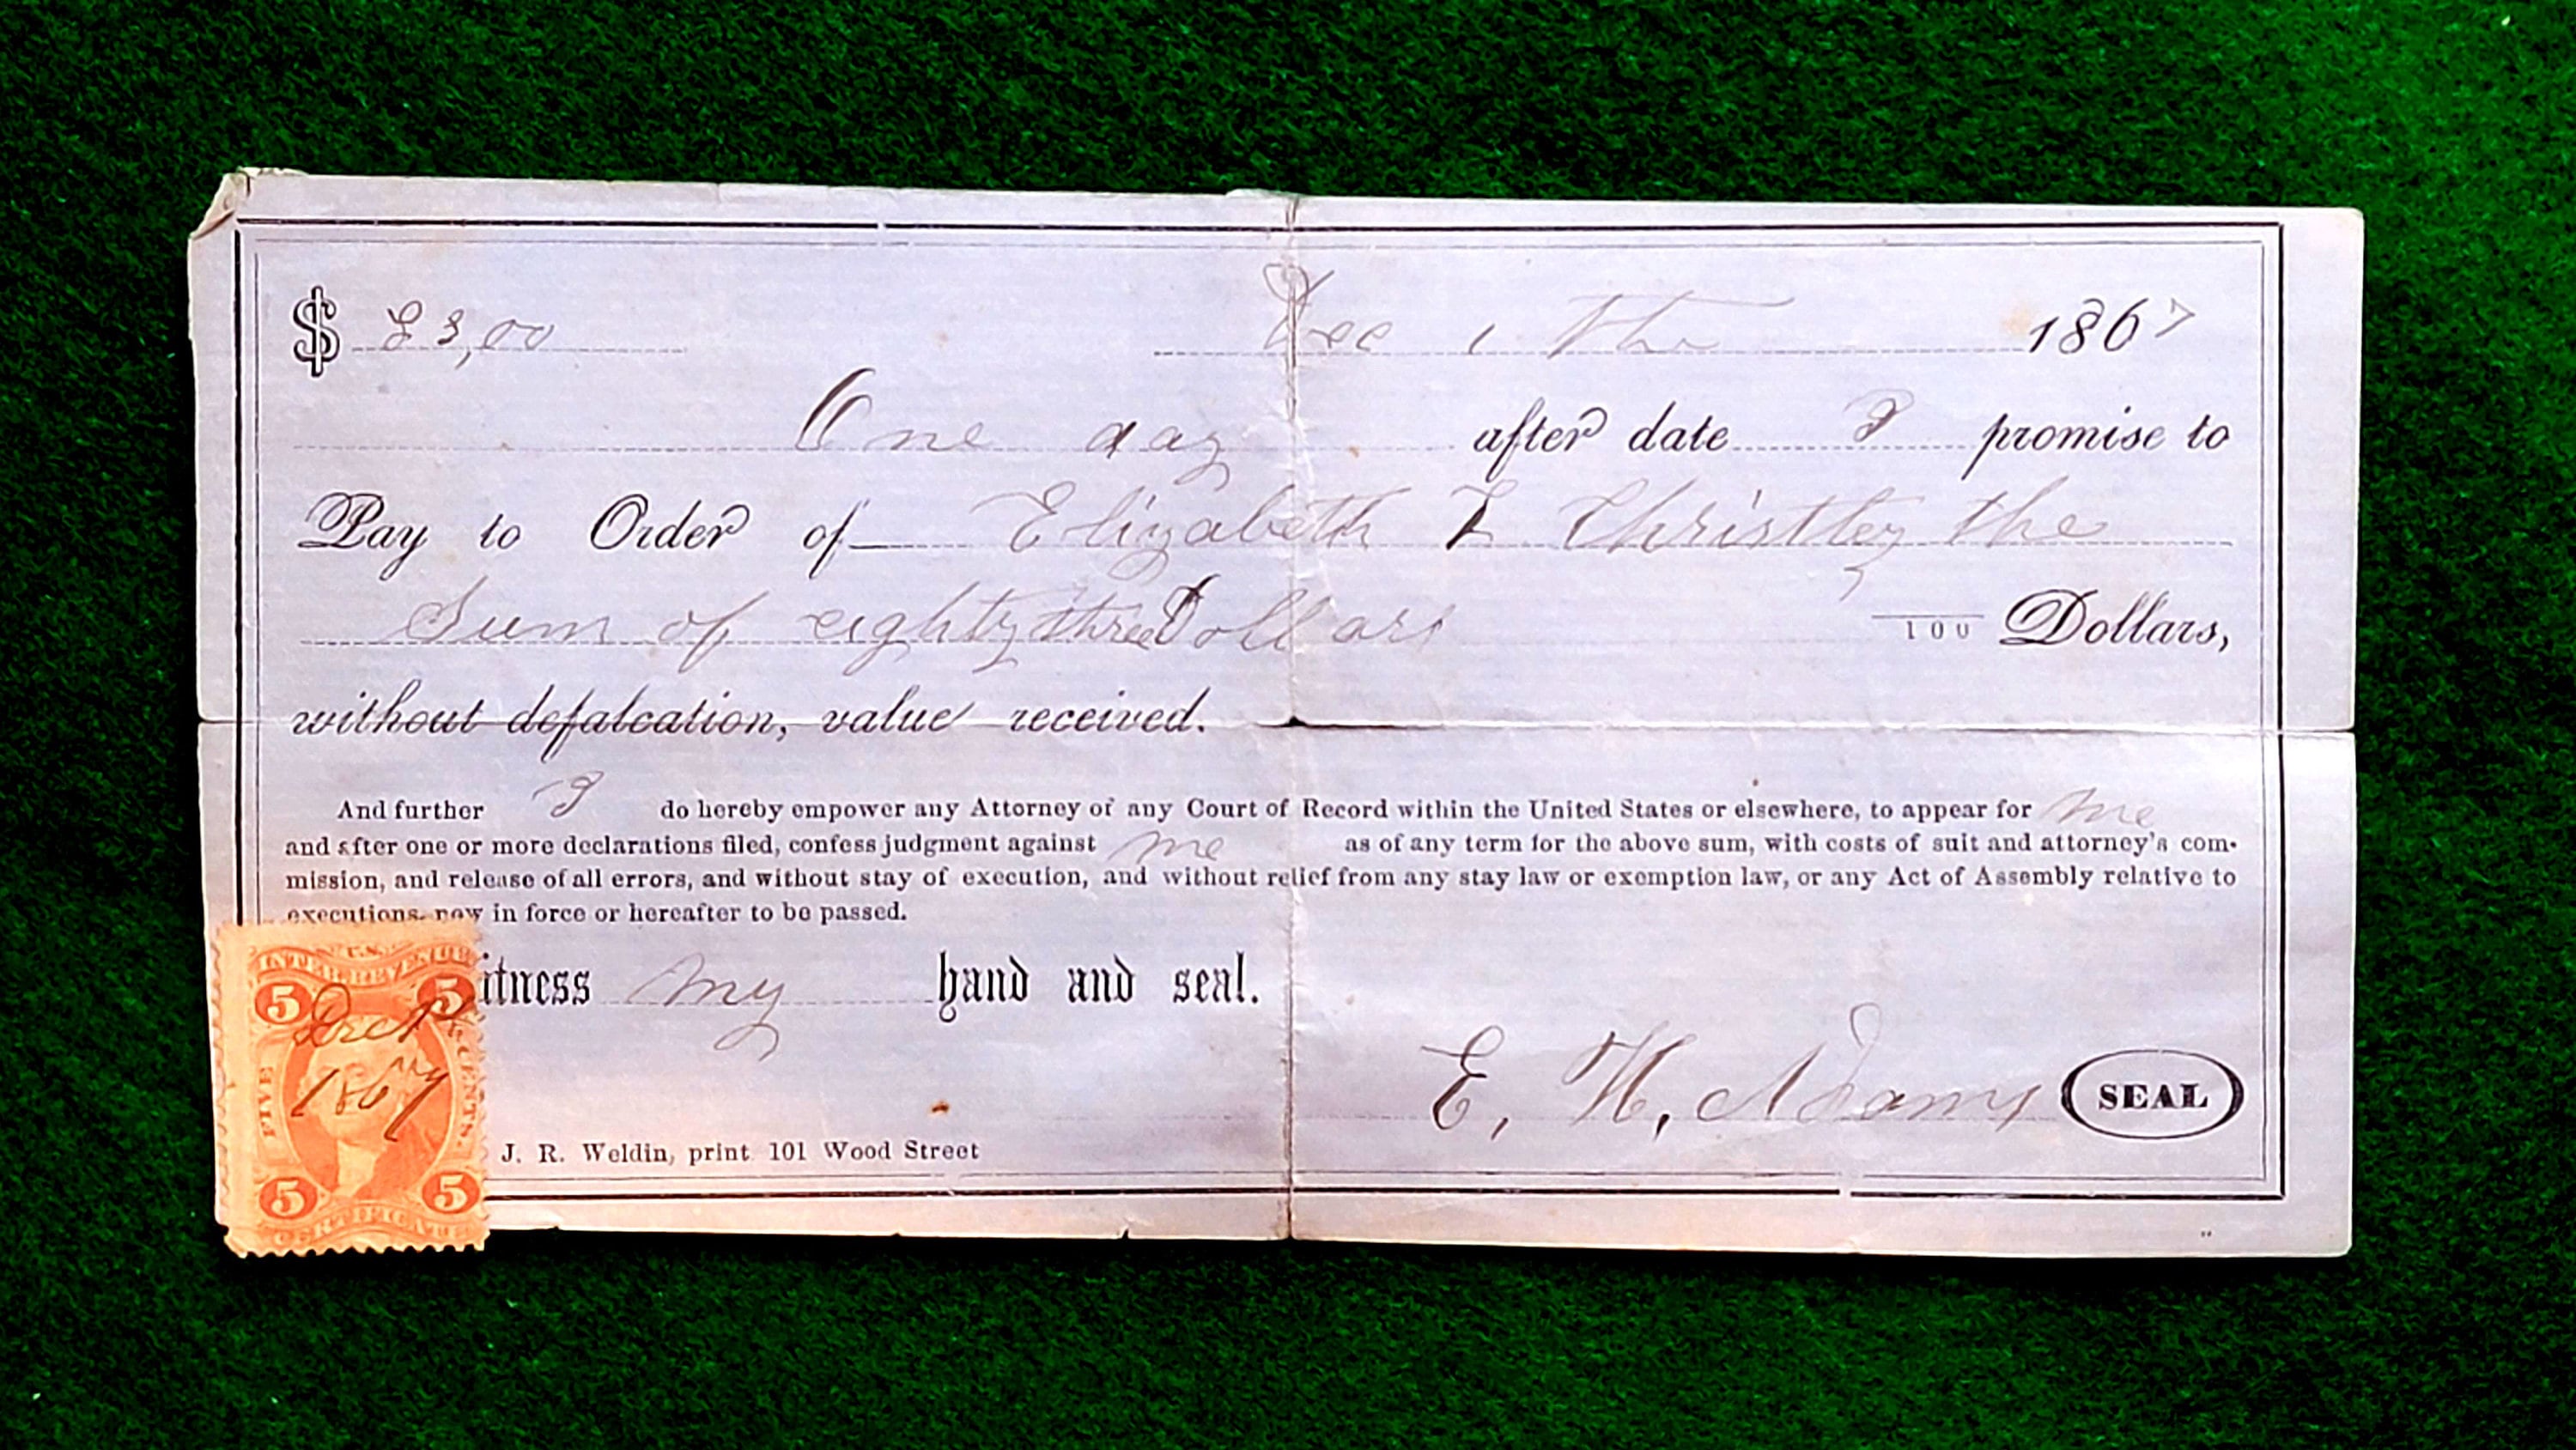 $ 83,00 Dec 1 the 1867
One day after date I promise to
Pay to Order of Elizabeth L Christley the
Sum of eighty three Dollars 100 Dollars,
without defalcation, value received.
And further I do hereby empower any Attorney of any Court of Record within the United States or elsewhere, to appear for me
and after one or more declarations filed, confess judgment against me as of any term for the above sum, with costs of suit and attorney's com-
mission, and release of all errors, and without stay of execution, and without relief from any stay law or exemption law, or any Act of Assembly relative to
executions, now in force or hereafter to be passed.
itness my hand and seal.
E, H, Adams SEAL
J. R. Weldin, print 101 Wood Street
U.S.
INTER. REVENUE
5 5
1867
FIVE CENTS.
5 5
CERTIFICATE